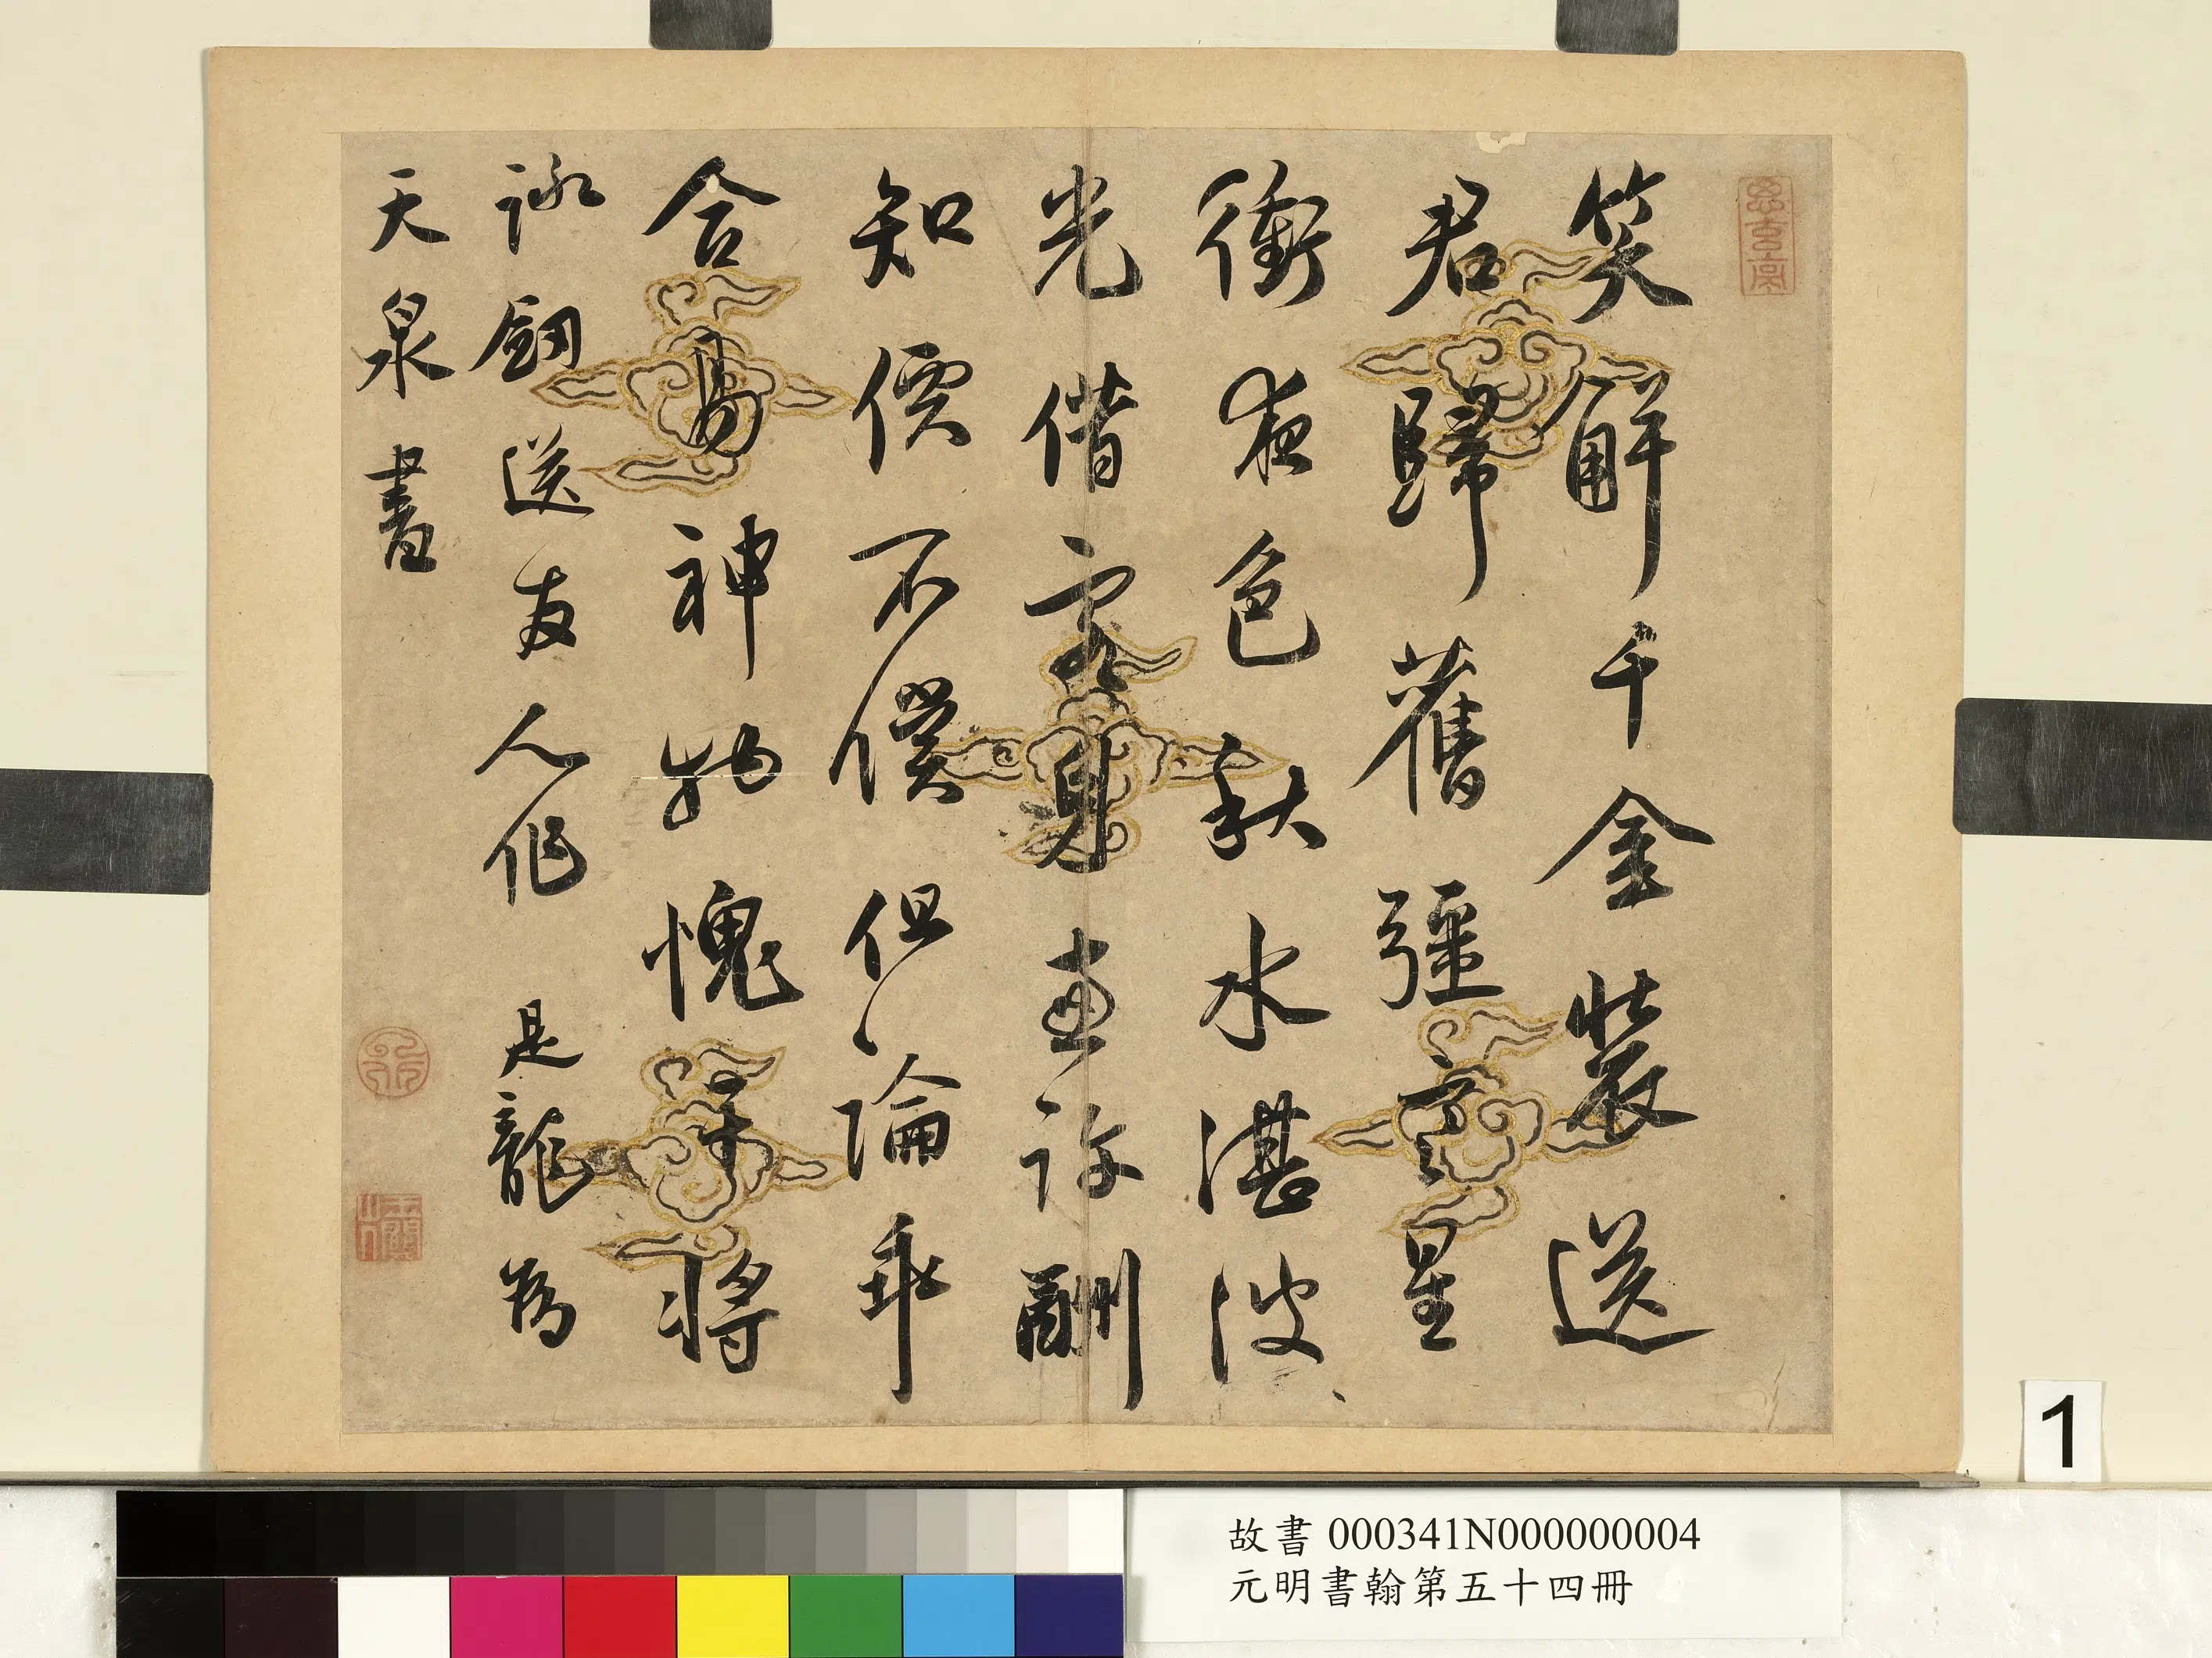 笑解千金裝送
君歸舊疆星
衝夜色秋水湛波
光借客身直許酬
知價不償但論乖
合易神物愧干將
詠劒送友人作 是龍為
天泉書
1
故書 000341N000000004
元明書翰第五十四冊